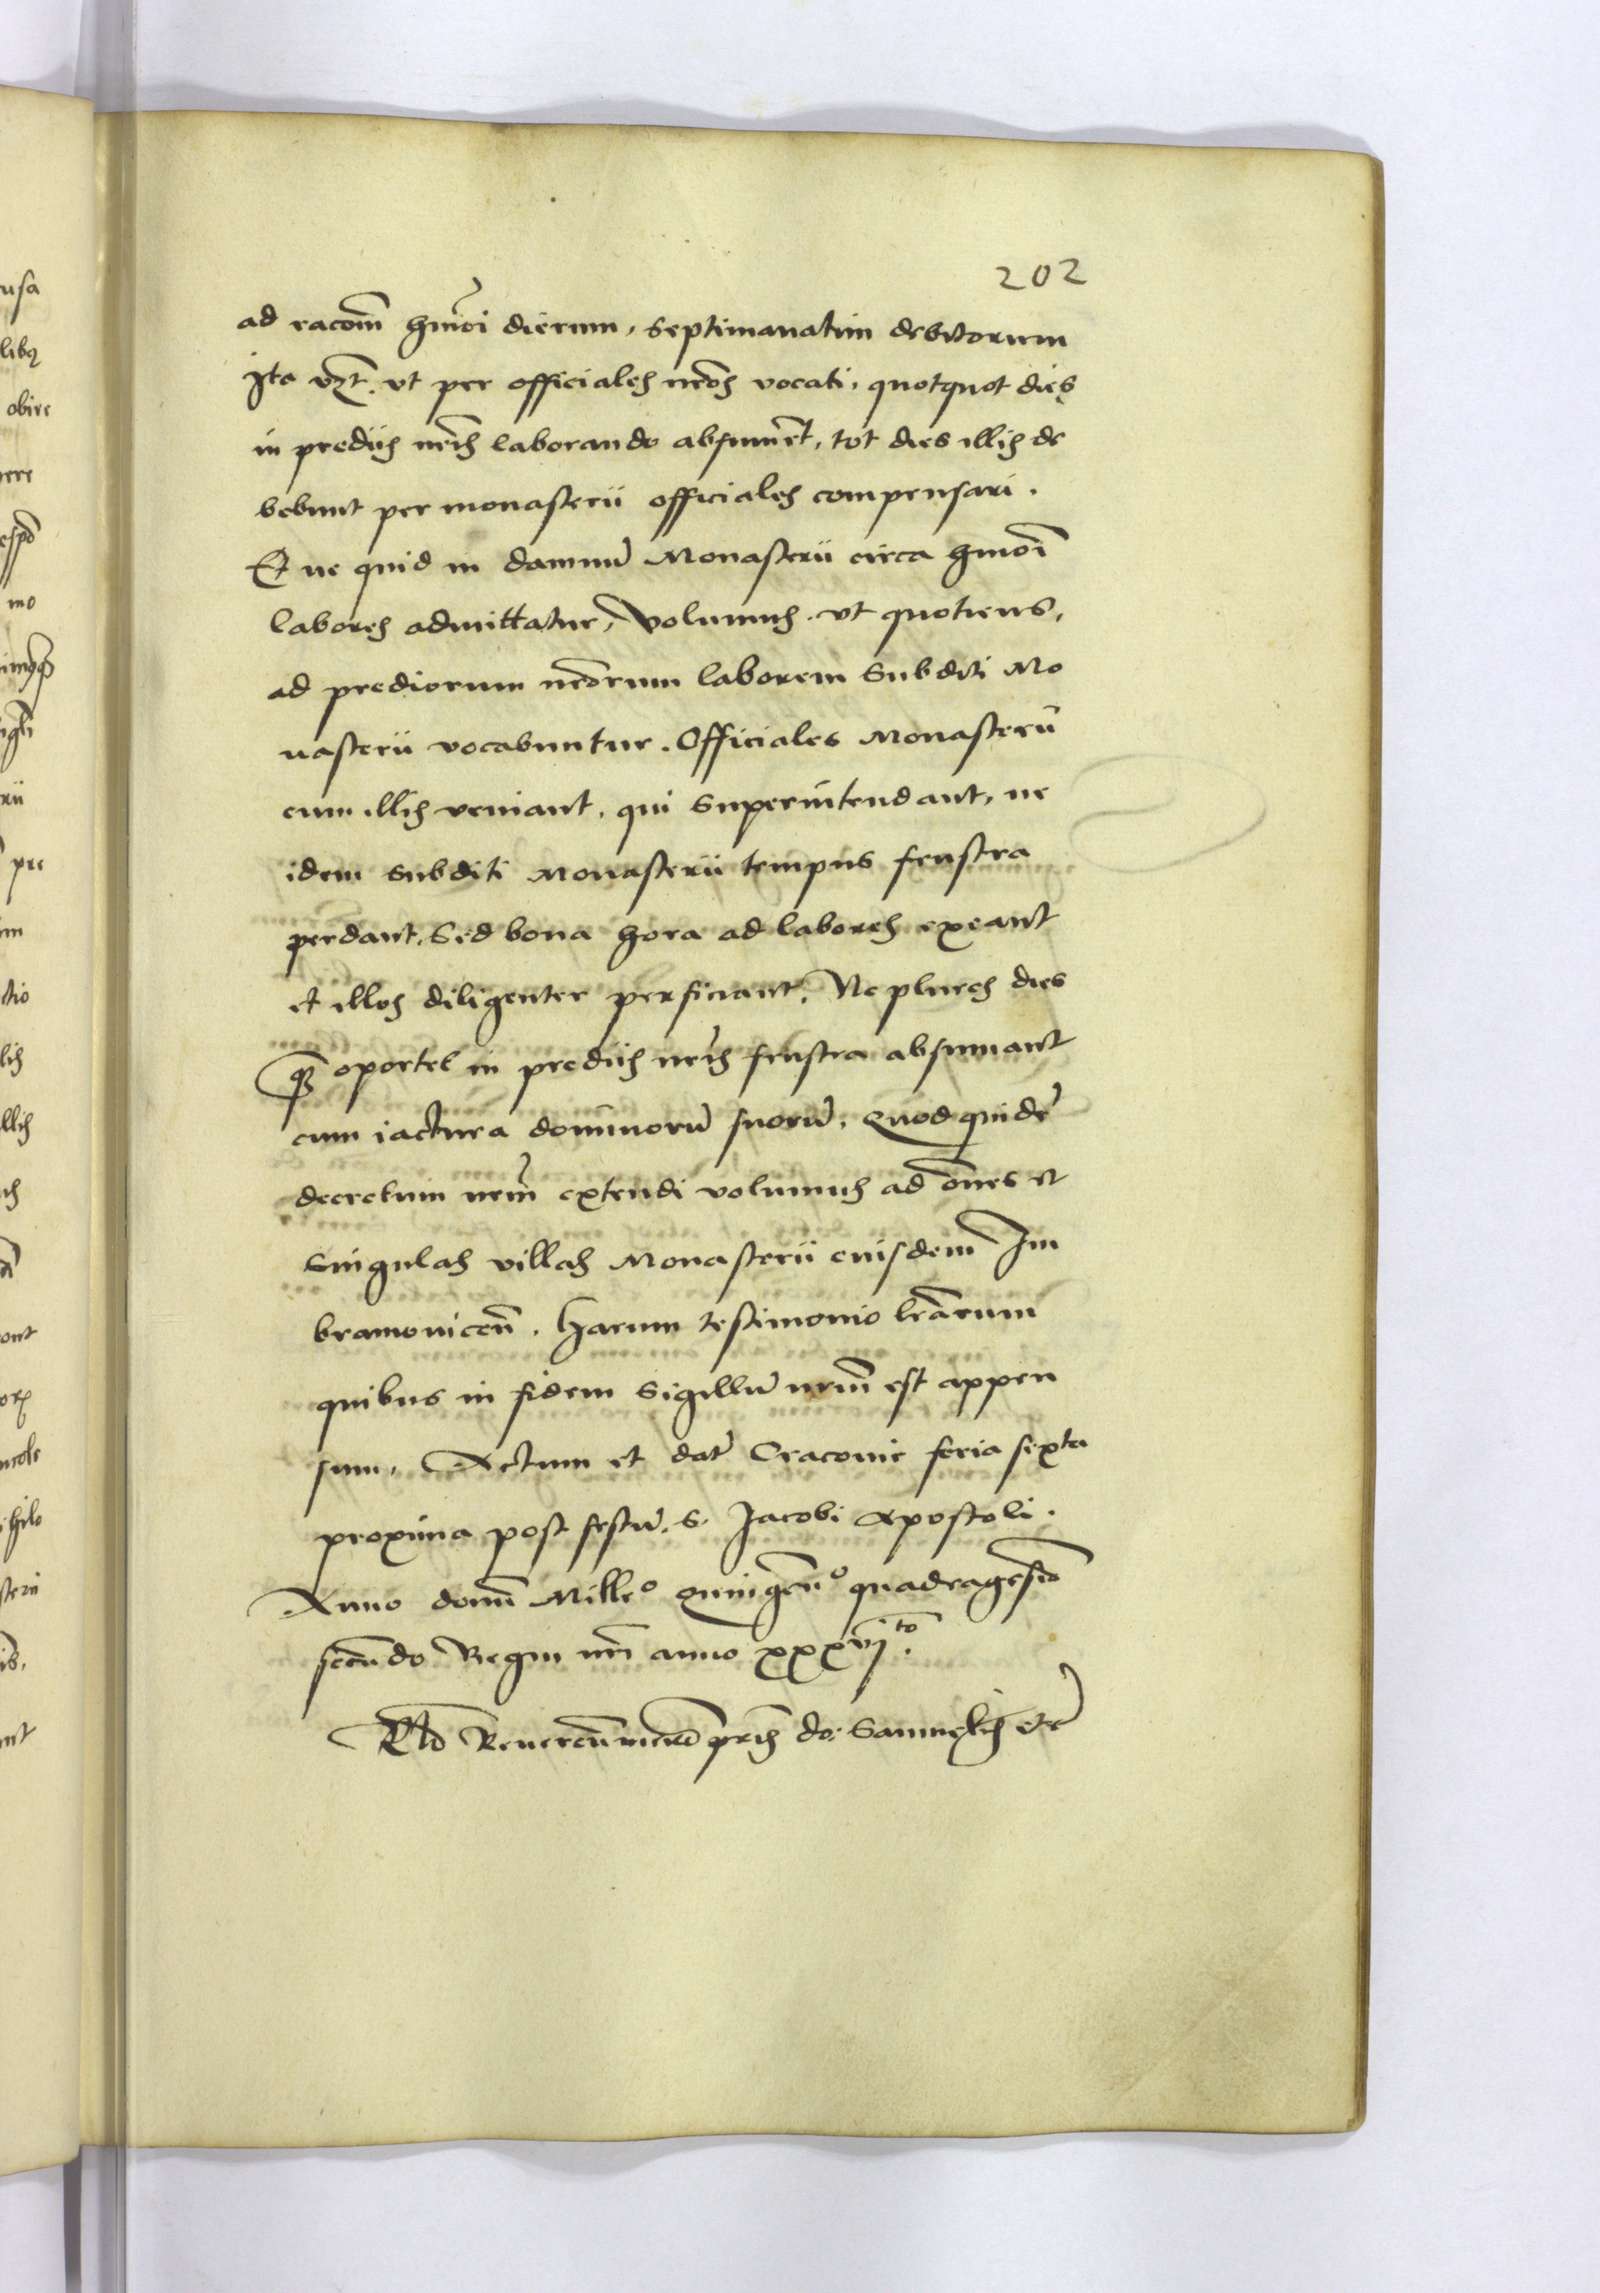 202
ad racoem hmoi dierum, septimanatim debitorum
Ita vzt. vt per officiales nros vocati, quotquot dies
in prediis nris laborando absument, tot dies illis de
bebunt per monasterii officiales compensari.
Et ne quid in damnu Monasterii circa hmoi
labores admittatur, Volumus. vt quotiens,
ad prediorum nrorum laborem Subditi Mo
nasterii vocabuntur. Officiales Monasterii
cum illis veniant, qui Superintendant, ne
idem Subditi Monasterii tempus frustra
perdant, Sed bona hora ad labores exeant
et illos diligenter perficiant, Ne plures dies
q oportet in prediis nris frustra absumant
cum iactura dominoru suoru, Quod quide
decretum nrm extendi volumus ad oes et
Singulas villas Monasterii eiusdem Im
bramovicen. Harum testimonio lrarum
quibus in fidem Sigillu nrm est appen
sum, Actum et dat Cracovie feria sexta
proxima post festu. S. Jacobi Apostoli.
Anno domi Milleo Quingeno quadragesio
secundo Regni nri anno xxxvjto.
Ad do: Samuelis etc